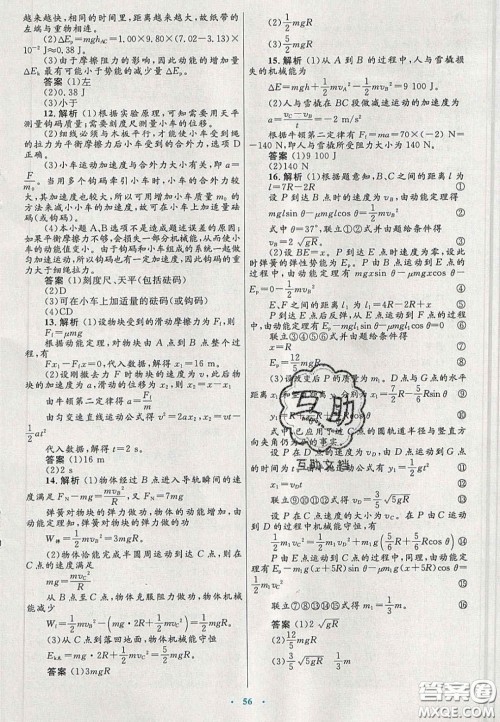 越来越快，相同的时间里，距离越来越大，故纸带的
左端与重物相连。
(2)ΔEp=mghAC=1.00×9.80×(7.02-3.13)×
10⁻² J≈0.38 J。
(3)由于摩擦阻力的影响，因此动能的增加量
ΔEk 最有可能小于势能的减少量 ΔEp。
答案 (1)左
(2)0.38 J
(3)小于
12.解析 (1)根据实验原理，可知需要用天平
测量钩码质量，需要刻度尺测量小车的位移。
(2)细线必须与木板平行，才能使小车受到细
线拉力等于平衡摩擦力后小车受到的合外力，故选
D。
(3)小车运动加速度与合外力大小有关，即 a=
F/m。当用多个钩码牵引小车时，小车的合外力较大，
小车的加速度就较大，其他条件不变，增大小车质量 m 的
方法来减小小车的加速度，故可在小车上加适量
砝码(或钩码)。
(4)本小题 A、B 选项不影响造成题述误差的原因。
如果平衡摩擦力不够，一部分机械能变为内能，使小车
的动能值变小。由于钩码和小车组成的系统一起做
匀加速运动，因此钩码的重力大于细线拉力，因此钩码的重
力大于细绳拉力。
答案 (1)刻度尺、天平(包括砝码)
(2)D
(3)可在小车上加适量的砝码(或钩码)
(4)CD
13.解析 (1)设物块受到的滑动摩擦力为F1，则
F1=μmg
根据动能定理，对物块由 A 到 B 整个过程，有
Fx1-F1x=0，代入数据，解得 x=16 m。
(2)设刚撤去力 F 时物块的速度为 v，此后物块
的加速度为 a，滑动的位移为 x2，则
由牛顿第二定律得 a=F1/m
由匀变速直线运动公式得 v²=2ax2，x2=vt-
1/2at²
代入数据，解得 t=2 s。
答案 (1)16 m
(2)2 s
14.解析 (1)物体经过 B 点进入导轨瞬间的速
度满足 FN-mg=mvB²/R，又 FN=7mg
弹簧对物体的弹力做功，使物体动能增加，由
动能定理知，弹簧对物块的弹力的功
W=1/2mvB²=3mgR。
(2)物体恰能完成半圆周运动到达 C 点，则在 C
点满足
mg=mvC²/R
从 B 点到 C 点，物体克服阻力做功，物体机械
能减少
Wf=1/2mvB²-(mg·2R+1/2mvC²)=1/2mgR。
(3)从 C 点到落回地面，物体机械能守恒
Ek总=mg·2R+1/2mvC²=5/2mgR。
答案 (1)3mgR
(2)1/2mgR
(3)5/2mgR
15.解析 (1)从 A 到 B 的过程中，人与雪橇损
失的机械能为
ΔE=mgh+1/2mvA²-1/2mvB²=9 100 J。
(2)人与雪橇在 BC 段做减速运动的加速度为
a=(vC-vB)/t=-2 m/s²
根据牛顿第二定律有 F1=ma=70×(-2) N=
-140 N
人与雪橇所受阻力大小为 140 N。
答案 (1)9 100 J
(2)140 N
16.解析 (1)根据题意知，B、C 之间的距离 l 为
l=7R-2R ①
设 P 到达 B 点时的速度为 vB，由动能定理得
mglsin θ-μmglcos θ=1/2mvB² ②
式中 θ=37°，联立①②式并由题给条件得
vB=2√gR。 ③
(2)设 BE=x。P 到达 E 点时速度为零，设此
时弹簧的弹性势能为 Ep。P 由 B 点运动到 E 点的过程
中，由动能定理有 mgxsin θ-μmgxcos θ-
Ep=0-1/2mvB² ④
E、F 之间的距离 l1 为 l1=4R-2R+x ⑤
P 到达 E 点后反弹，从 E 点运动到 F 点的过程
中，由动能定理有 Ep-mgl1sin θ-μmgl1cos θ=0 ⑥
联立③④⑤⑥式并由题给条件得
x=R ⑦
Ep=12/5mgR ⑧
(3)设改变后 P 的质量为 m1。D 点与 G 点的水平
距离 x1 和竖直距离 y1 分别为 x1=7/2R-5/6Rsin θ ⑨
y1=R+5/6R+5/6Rcos θ ⑩
式中，已应用了过 C 点的圆轨道半径与竖直方
向夹角仍为 θ 的事实。
设 P 在 D 点的速度为 vD，由 D 点运动到 G 点的时间
为 t。由平抛运动公式有 y1=1/2gt² ⑪
x1=vDt ⑫
联立⑨⑩⑪⑫式得 vD=3/5√5gR ⑬
设 P 在 C 点速度的大小为 vC。在 P 由 C 点运动
到 D 的过程中机械能守恒，有
1/2m1vC²=1/2m1vD²+m1g(5/6R+5/6Rcos θ) ⑭
P 由 E 点运动到 C 点的过程中，同理，由动能定
理有 Ep-m1g(x+5R)sin θ-μm1g(x+5R)cos θ=
1/2m1vC² ⑮
联立⑦⑧⑬⑭⑮式得 m1=1/3m。 ⑯
答案 (1)2√gR
(2)12/5mgR
(3)3/5√5gR 1/3m
互助
互助文档
56
答案圈
MXQE.COM